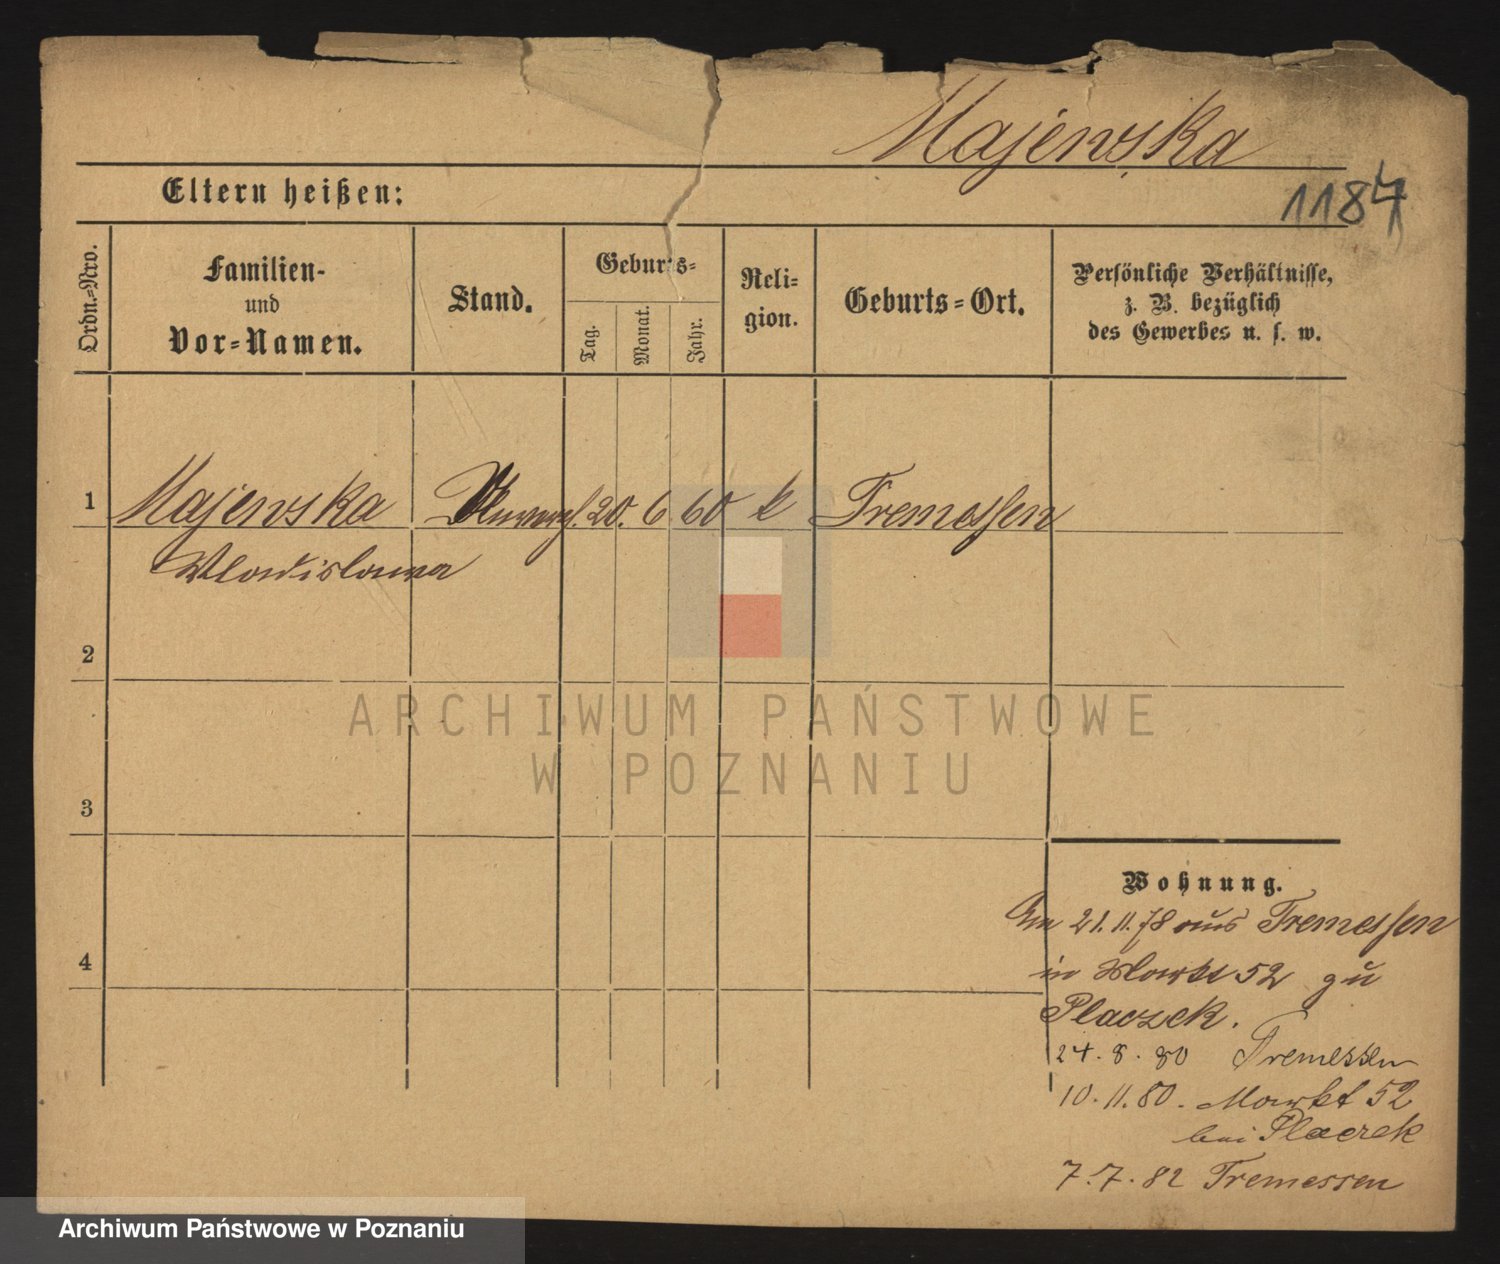 Majewska
1184
Eltern heißen:
Ordn.-Nro.
Familien-
und
Vor-Namen.
Stand.
Geburts-
Tag.
Monat.
Jahr.
Reli-
gion.
Geburts-Ort.
Persönliche Verhältnisse,
z. B. bezüglich
des Gewerbes u. s. w.
1 Majewska 20. 6 60 k Tremessen
Wladislawa
2
ARCHIWUM PAŃSTWOWE
W POZNANIU
3
Wohnung.
Am 21.11.78 aus Tremessen
4
in Markt 52 zu
Placzek.
24.8.80 Tremessen
10.11.80. Markt 52
bei Placzek
7.7.82 Tremessen
Archiwum Państwowe w Poznaniu